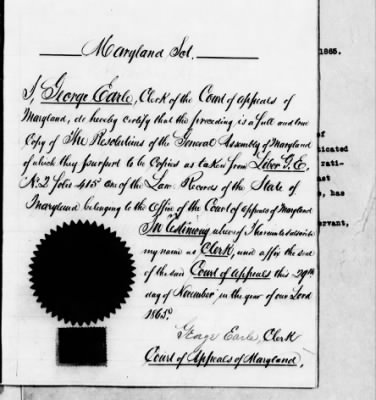 Maryland Sct.
1865.
I, George Earle, Clerk of the Court of appeals of
Maryland, do hereby certify that the preceding is a full and true
Copy of The Resolutions of the General Assembly of Maryland
of which they purport to be Copies as taken from Liber G. E.
No. 2 folio 415 one of the Law Records of the State of
Maryland belonging to the Office of the Court of appeals of Maryland
In Testimony whereof I hereunto subscribe
my name as Clerk, and affix the seal
of the said Court of Appeals this 29th
day of November in the year of our Lord
1865.
George Earle, Clerk
Court of Appeals of Maryland.
of
icated
rati-
, has
rvant,